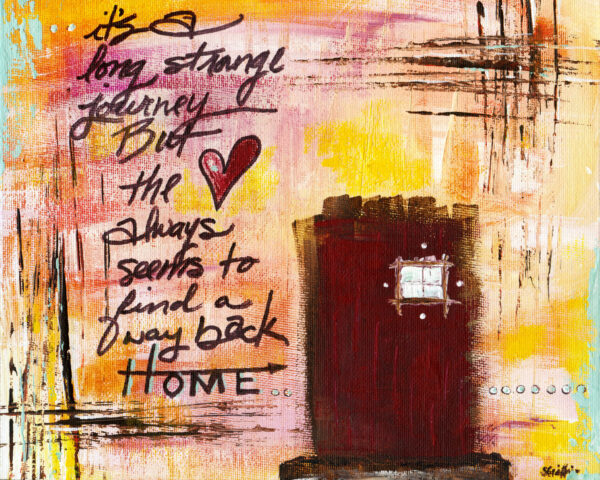 it's a
long strange
journey
But
the
always
seems to
find a
way back
HOME